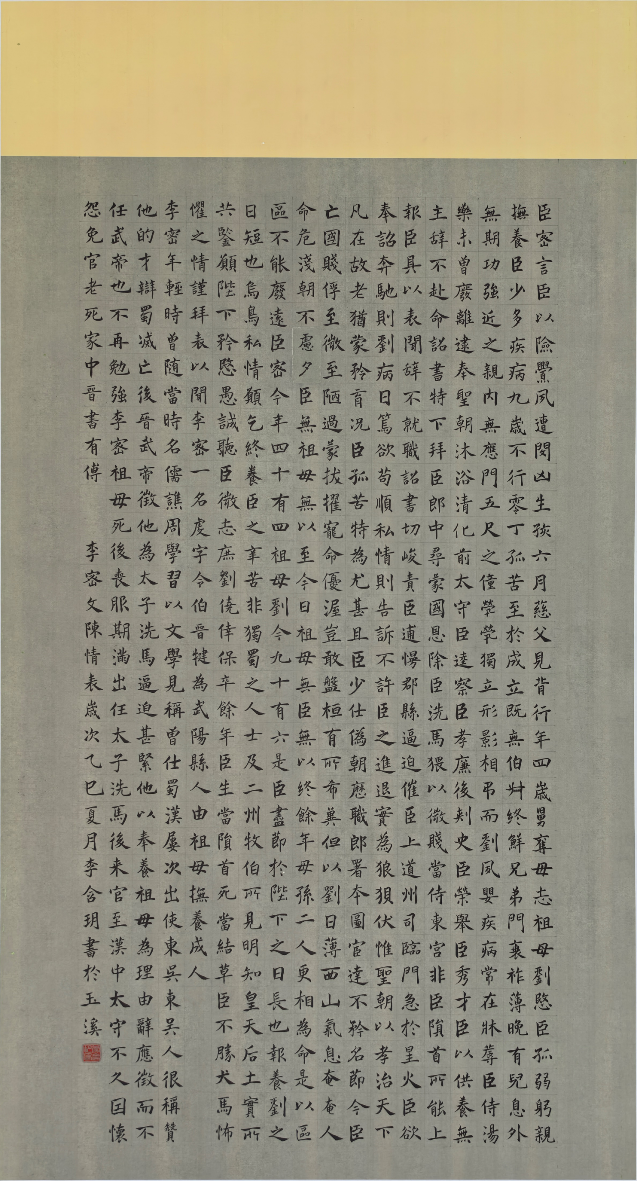 臣密言臣以險釁夙遭閔凶生孩六月慈父見背行年四歲舅奪母志祖母劉愍臣孤弱躬親
撫養臣少多疾病九歲不行零丁孤苦至於成立既無伯叔終鮮兄弟門衰祚薄晚有兒息外
無期功強近之親內無應門五尺之僮煢煢獨立形影相弔而劉夙嬰疾病常在牀蓐臣侍湯
藥未曾廢離逮奉聖朝沐浴清化前太守臣逵察臣孝廉後刺史臣榮舉臣秀才臣以供養無
主辭不赴命詔書特下拜臣郎中尋蒙國恩除臣洗馬猥以微賤當侍東宮非臣隕首所能上
報臣具以表聞辭不就職詔書切峻責臣逋慢郡縣逼迫催臣上道州司臨門急於星火臣欲
奉詔奔馳則劉病日篤欲苟順私情則告訴不許臣之進退實為狼狽伏惟聖朝以孝治天下
凡在故老猶蒙矜育況臣孤苦特為尤甚且臣少仕偽朝歷職郎署本圖宦達不矜名節今臣
亡國賤俘至微至陋過蒙拔擢寵命優渥豈敢盤桓有所希冀但以劉日薄西山氣息奄奄人
命危淺朝不慮夕臣無祖母無以至今日祖母無臣無以終餘年母孫二人更相為命是以區
區不能廢遠臣密今年四十有四祖母劉今九十有六是臣盡節於陛下之日長也報養劉之
日短也烏鳥私情願乞終養臣之辛苦非獨蜀之人士及二州牧伯所見明知皇天后土實所
共鑒願陛下矜愍愚誠聽臣微志庶劉僥倖保卒餘年臣生當隕首死當結草臣不勝犬馬怖
懼之情謹拜表以聞李密一名虔字令伯晉犍為武陽縣人由祖母撫養成人
李密年輕時曾隨當時名儒譙周學習以文學見稱曾仕蜀漢屢次出使東吳東吳人很稱贊
他的才辯蜀滅亡後晉武帝徵他為太子洗馬逼迫甚緊他以奉養祖母為理由辭應徵而不
任武帝也不再勉強李密祖母死後喪服期滿出任太子洗馬後来官至漢中太守不久因懷
怨免官老死家中晉書有傳 李密文陳情表歲次乙巳夏月李含玥書於玉溪